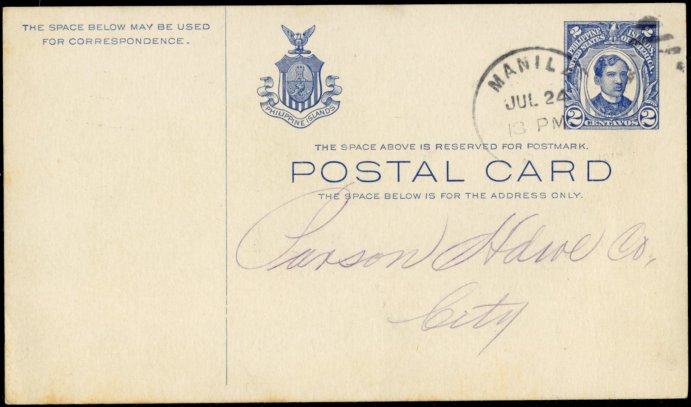 THE SPACE BELOW MAY BE USED
FOR CORRESPONDENCE.
PHILIPPINE ISLANDS
2 2
PHILIPPINE ISLANDS
UNITED STATES OF AMERICA
2 CENTAVOS 2
MANILA
JUL 24
PM
THE SPACE ABOVE IS RESERVED FOR POSTMARK.
POSTAL CARD
THE SPACE BELOW IS FOR THE ADDRESS ONLY.
Parson Hdwe Co,
City